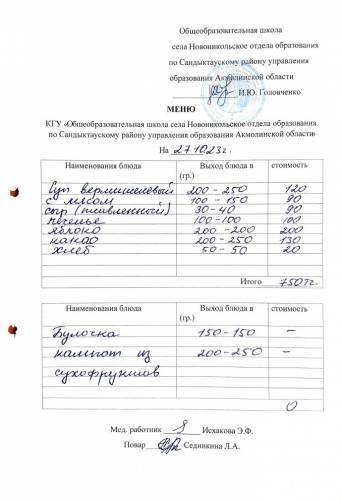 Общеобразовательная школа
села Новоникольское отдела образования
по Сандыктаускому району управления
образования Акмолинской области
И.Ю. Головченко
МЕНЮ
КГУ «Общеобразовательная школа села Новоникольское отдела образования
по Сандыктаускому району управления образования Акмолинской области»
На 27.10.23г.
Наименования блюда Выход блюда в (гр.) стоимость
Суп вермишелевый 200-250 120
с мясом 100-150 90
сыр (плавленный) 30-40 90
печенье 100-100 100
яблоко 200-200 200
какао 200-250 130
хлеб 50-50 20
Итого 750тг.
Наименования блюда Выход блюда в (гр.) стоимость
Булочка 150-150 –
компот из 200-250 –
сухофруктов
0
Мед. работник Исхакова Э.Ф.
Повар Сединкина Л.А.